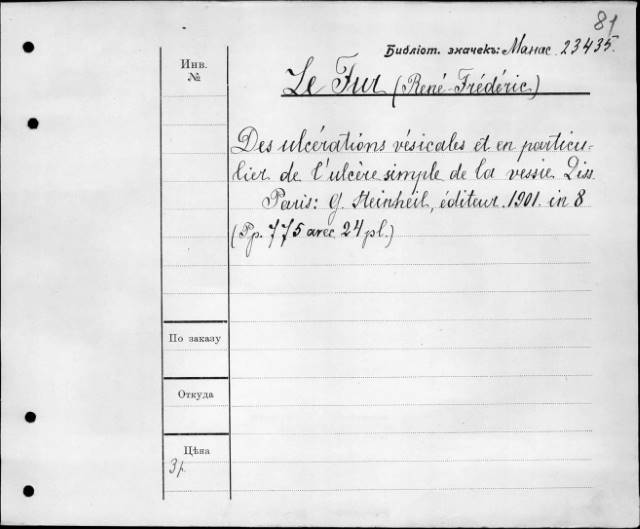 81
Библіот. значекъ: Манас. 23435.
Инв.
№
Le Fur (René-Frédéric)
Des ulcérations vésicales et en particu-
lier de l'ulcère simple de la vessie. Diss.
Paris: G. Steinheil, éditeur. 1901. in 8
(Pp. 775 avec 24 pl.)
По заказу
Откуда
Цѣна
3 р.